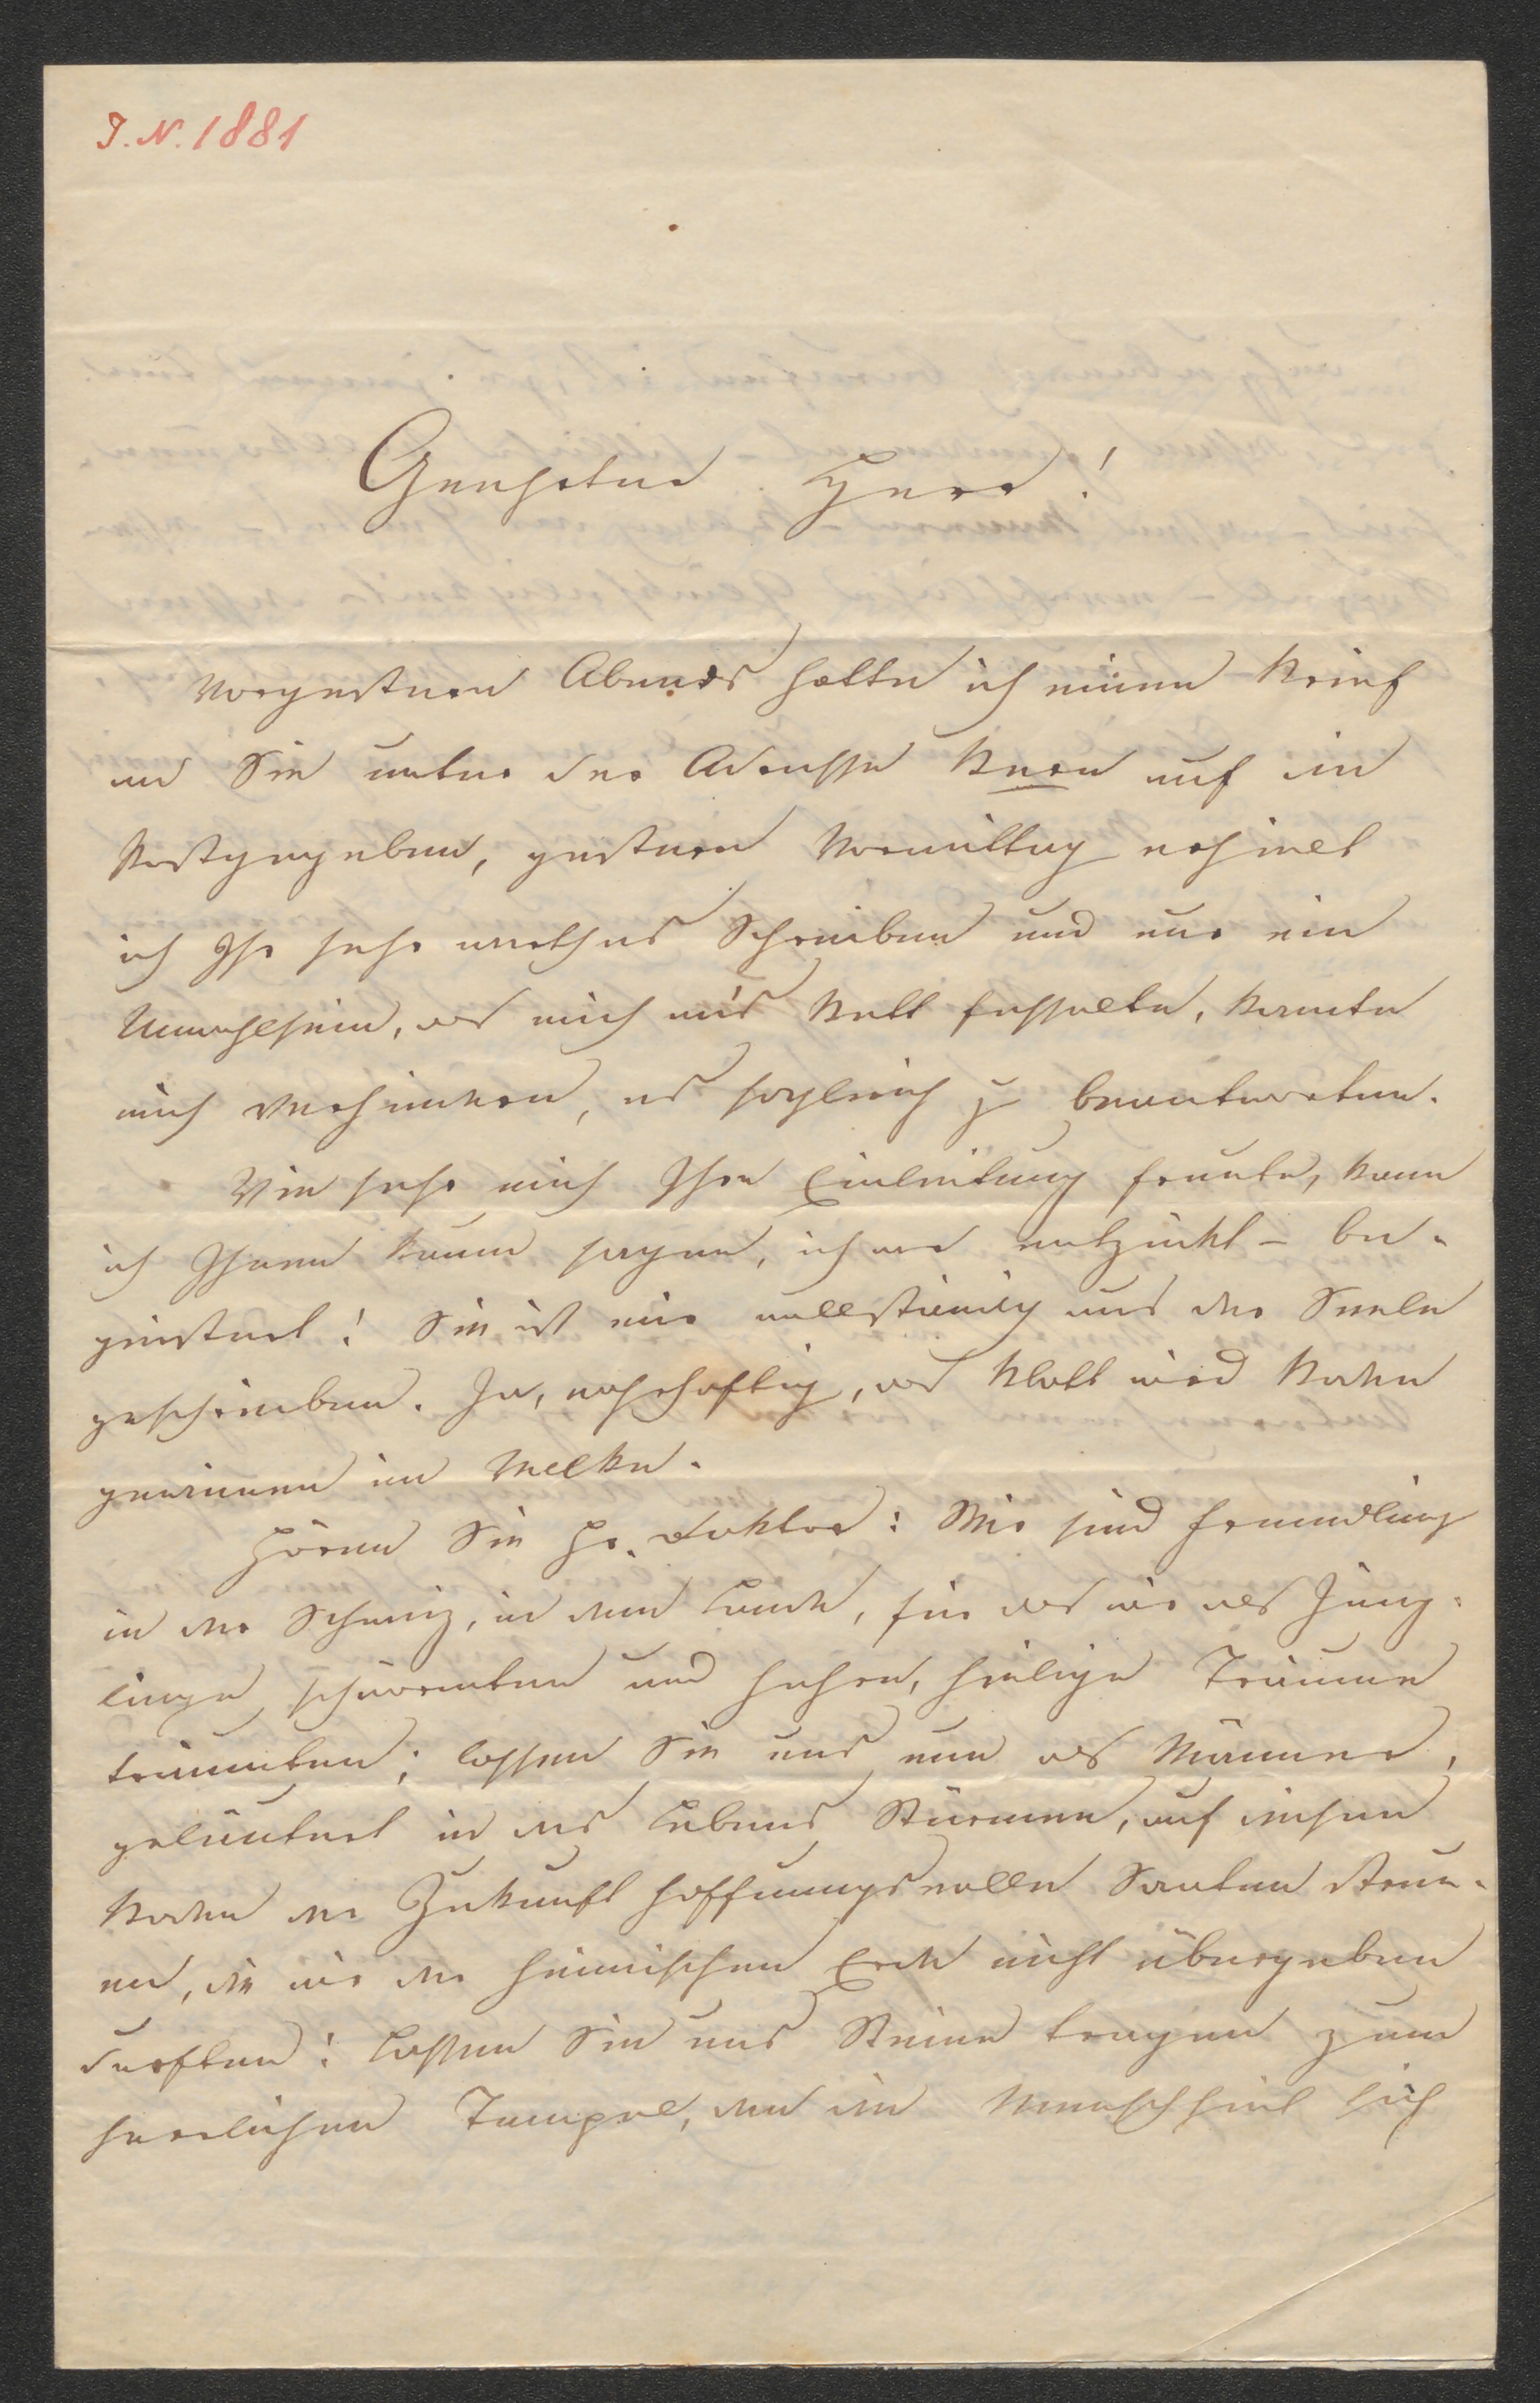 J. N. 1881
Geehrter Herr!
Vorgestern Abends hatte ich einen Brief
an Sie unter der Adresse Bern auf die
Post gegeben, gestern Vormittag erhielt
ich Ihr sehr werthes Schreiben und nur ein
Unwohlsein, das mich an's Bett fesselte, konnte
mich verhindern, es sogleich zu beantworten.
Wie sehr mich Ihre Einleitung freute, kann
ich Ihnen kaum sagen, ich war entzückt – be-
geistert! Sie ist mir vollständig aus der Seele
geschrieben. Ja, wahrhaftig, das Blatt wird Boden
gewinnen im Volke.
Hören Sie Hr. Doktor: Wir sind Fremdlinge
in der Schweiz, in dem Lande, für das wir als Jüng-
linge schwärmten und hehre, heilige Träume
träumten; lassen Sie uns nun als Männer,
geläutert in des Lebens Stürmen, auf diesen
Boden der Zukunft hoffnungsvolle Saaten streu-
en, die wir der heimischen Erde nicht übergeben
durften! Lassen Sie uns Steine tragen zum
herrlichen Tempel, den die Menschheit sich